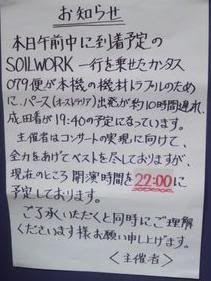 お知らせ
本日午前中に到着予定の
SOILWORK 一行を乗せたカンタス
079便が本機の機材トラブルのため
に、パース(オーストラリア)出発が約10時間遅れ、
成田着が19:40の予定になっています。
主催者はコンサートの実現に向けて、
全力をあげてベストを尽しておりますが、
現在のところ開演時間を22:00に
予定しております。
ご了承いただくと同時にご理解
くださいます様お願い申し上げます。
〈主催者〉